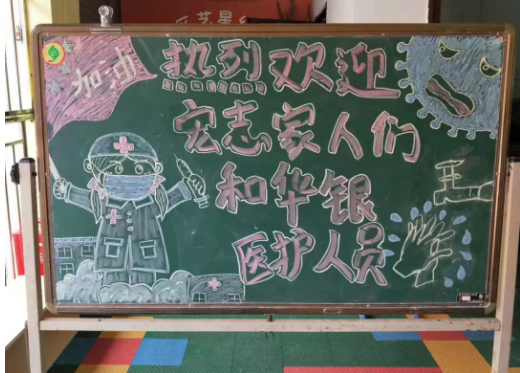 艺星
加油
热烈欢迎
宏志家人们
和华银
医护人员